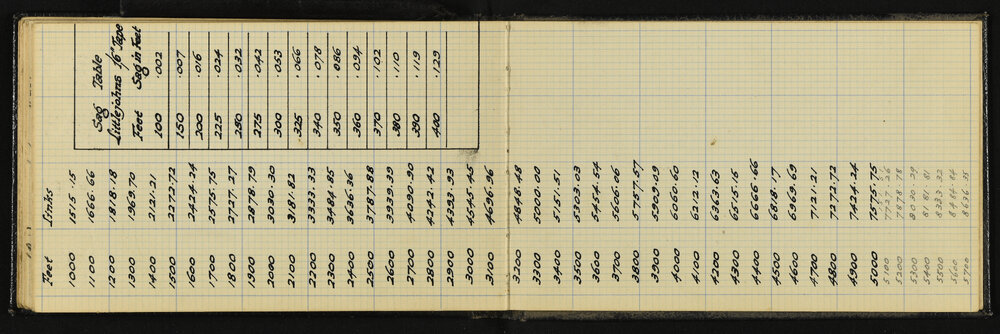 Feet Links
1000 1515.15
1100 1666.66
1200 1818.18
1300 1969.70
1400 2121.21
1500 2272.72
1600 2424.24
1700 2575.75
1800 2727.27
1900 2878.79
2000 3030.30
2100 3181.82
2200 3333.33
2300 3484.85
2400 3636.36
2500 3787.88
2600 3939.39
2700 4090.90
2800 4242.42
2900 4393.93
3000 4545.45
3100 4696.96
Sag Table
Littlejohns 1/8" Tape
Feet Sag in Feet
100 .002
150 .007
200 .016
225 .024
250 .032
275 .042
300 .053
325 .066
340 .078
350 .086
360 .094
370 .102
380 .110
390 .119
400 .129
3200 4848.48
3300 5000.00
3400 5151.51
3500 5303.03
3600 5454.54
3700 5606.06
3800 5757.57
3900 5909.09
4000 6060.60
4100 6212.12
4200 6363.63
4300 6515.15
4400 6666.66
4500 6818.17
4600 6969.69
4700 7121.21
4800 7272.72
4900 7424.24
5000 7575.75
5100 7727.26
5200 7878.78
5300 8030.29
5400 8181.81
5500 8333.32
5600
5700 8636.35